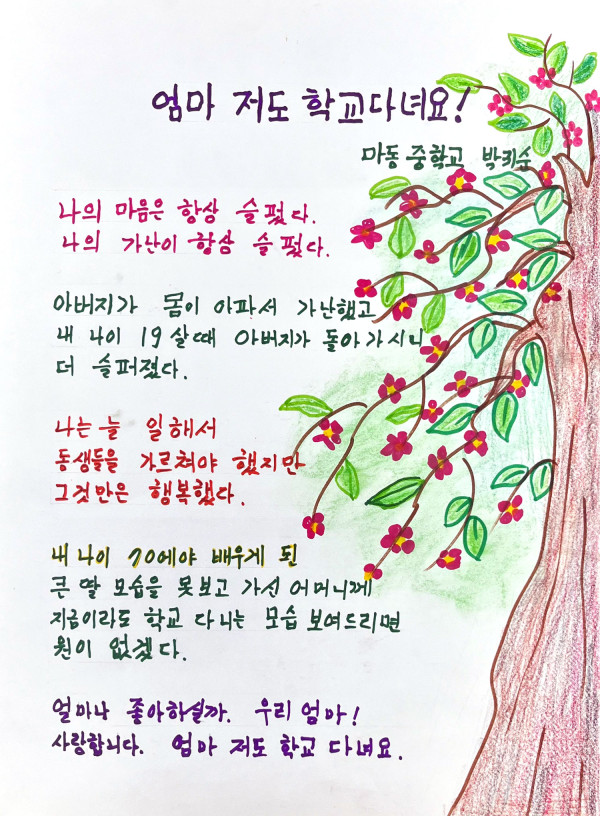 엄마 저도 학교다녀요!
마동 중학교 박키순
나의 마음은 항상 슬펐다.
나의 가난이 항상 슬펐다.
아버지가 몸이 아파서 가난했고
내 나이 19살때 아버지가 돌아가시니
더 슬퍼졌다.
나는 늘 일해서
동생들을 가르쳐야 했지만
그것만은 행복했다.
내 나이 70에야 배우게 된
큰 딸 모습을 못보고 가신 어머니께
지금이라도 학교 다니는 모습 보여드리면
원이 없겠다.
얼마나 좋아하실까. 우리 엄마!
사랑합니다. 엄마 저도 학교 다녀요.